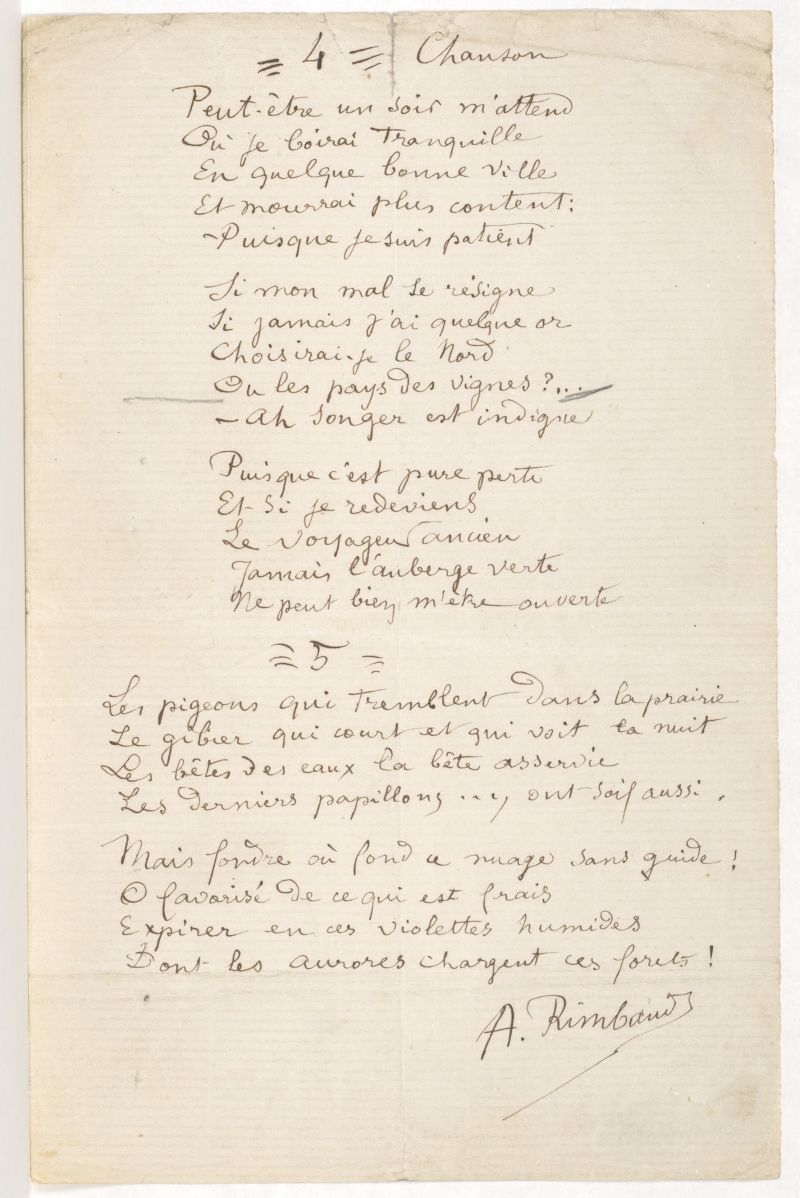 = 4 = Chanson
Peut-être un soir m'attend
Où je boirai tranquille
En quelque bonne ville
Et mourrai plus content:
- Puisque je suis patient
Si mon mal se résigne
Si jamais j'ai quelque or
Choisirai-je le Nord
Ou les pays des vignes?...
- Ah songer est indigne
Puisque c'est pure perte
Et si je redeviens
Le voyageur ancien
Jamais l'auberge verte
Ne peut bien m'être ouverte
= 5 =
Les pigeons qui tremblent dans la prairie
Le gibier qui court et qui voit la nuit
Les bêtes des eaux la bête asservie
Les derniers papillons ... ont soif aussi.
Mais fondre où fond ce nuage sans guide!
O favorisé de ce qui est frais
Expirer en ces violettes humides
Dont les aurores chargent ces forets!
A. Rimbaud